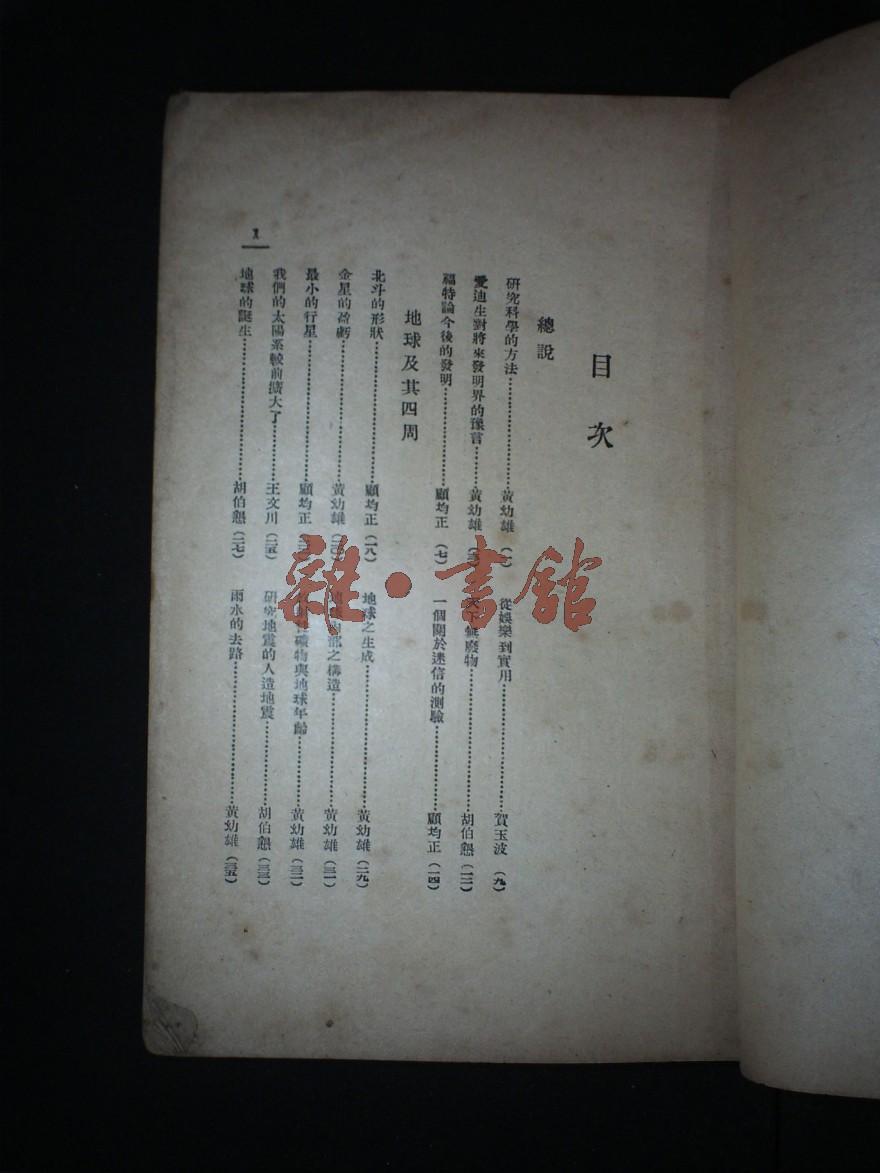 目次
總說
研究科學的方法……黃幼雄（一）
愛迪生對將來發明界的豫言……黃幼雄
福特論今後的發明……顧均正（七）
從娛樂到實用……賀玉波（九）
天下無廢物……胡伯懇（一二）
一個關於迷信的測驗……顧均正（一四）
地球及其四周
北斗的形狀……顧均正（一八）
金星的盈虧……黃幼雄（二〇）
最小的行星……顧均正
我們的太陽系較前擴大了……王文川（二五）
地球的誕生……胡伯懇（二七）
地球之生成……黃幼雄（二九）
地球內部之構造……黃幼雄（三一）
礦物與地球年齡……黃幼雄（三二）
研究地震的人造地震……胡伯懇（三三）
雨水的去路……黃幼雄（三五）
1
雜·書館